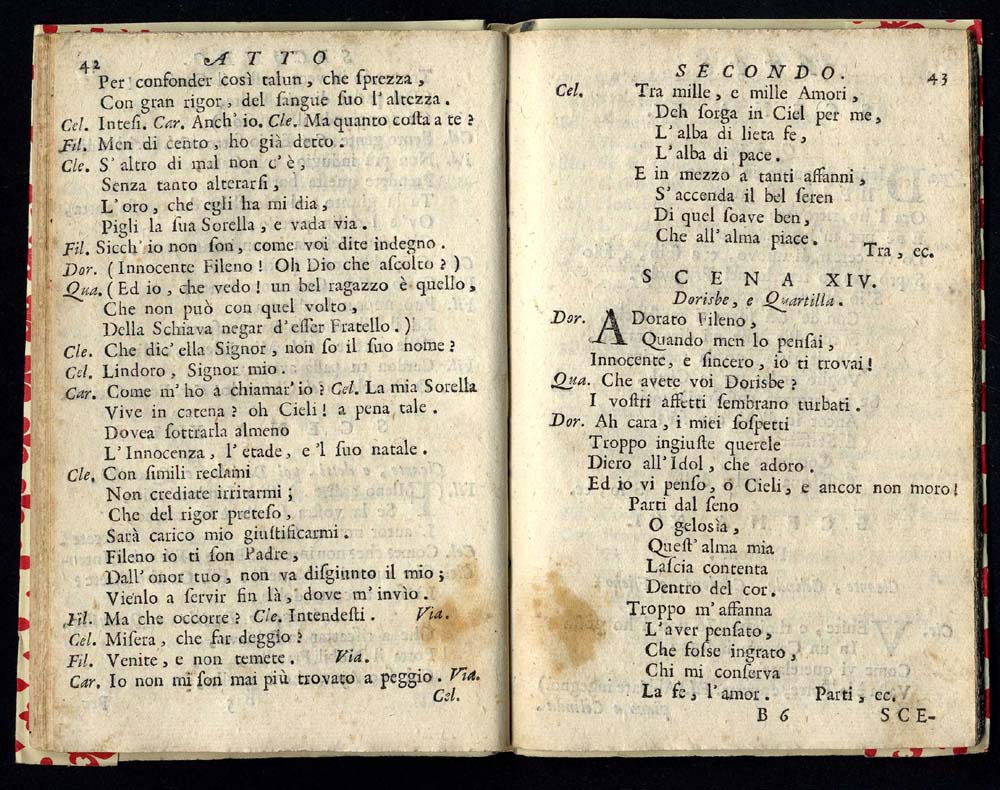 42 ATTO
Per confonder così talun, che ſprezza,
Con gran rigor, del ſangue ſuo l'altezza.
Cel. Inteſi. Car. Anch'io. Cle. Ma quanto coſta a te?
Fil. Men di cento, ho già detto.
Cle. S'altro di mal non c'è,
Senza tanto alterarſi,
L'oro, che egli ha mi dia,
Pigli la ſua Sorella, e vada via.
Fil. Sicch'io non ſon, come voi dite indegno.
Dor. (Innocente Fileno! Oh Dio che aſcolto?)
Qua. (Ed io, che vedo! un bel ragazzo è quello,
Che non può con quel volto,
Della Schiava negar d'eſſer Fratello.)
Cle. Che dic'ella Signor, non ſo il ſuo nome?
Cel. Lindoro, Signor mio.
Car. Come m'ho à chiamar'io? Cel. La mia Sorella
Vive in catena? oh Cieli! a pena tale.
Dovea ſottrarla almeno
L'Innocenza, l'etade, e'l ſuo natale.
Cle. Con ſimili reclami
Non crediate irritarmi;
Che del rigor preteſo,
Sarà carico mio giuſtificarmi.
Fileno io ti ſon Padre,
Dall'onor tuo, non va diſgiunto il mio;
Vienlo a ſervir fin là, dove m'invìo.
Fil. Ma che occorre? Cle. Intendeſti. Via.
Cel. Miſera, che far deggio?
Fil. Venite, e non temete. Via.
Car. Io non mi ſon mai più trovato a peggio. Via.
Cel.
SECONDO. 43
Cel. Tra mille, e mille Amori,
Deh ſorga in Ciel per me,
L'alba di lieta fe,
L'alba di pace.
E in mezzo a tanti affanni,
S'accenda il bel ſeren
Di quel ſoave ben,
Che all'alma piace.
Tra, ec.
SCENA XIV.
Dorisbe, e Quartilla.
Dor. ADorato Fileno,
Quando men lo penſai,
Innocente, e ſincero, io ti trovai!
Qua. Che avete voi Dorisbe?
I voſtri affetti ſembrano turbati.
Dor. Ah cara, i miei ſoſpetti
Troppo ingiuſte querele
Diero all'Idol, che adoro.
Ed io vi penſo, o Cieli, e ancor non moro!
Parti dal ſeno
O geloſìa,
Queſt'alma mia
Laſcia contenta
Dentro del cor.
Troppo m'affanna
L'aver penſato,
Che foſſe ingrato,
Chi mi conſerva
La fe, l'amor. Parti, ec.
B 6 SCE-